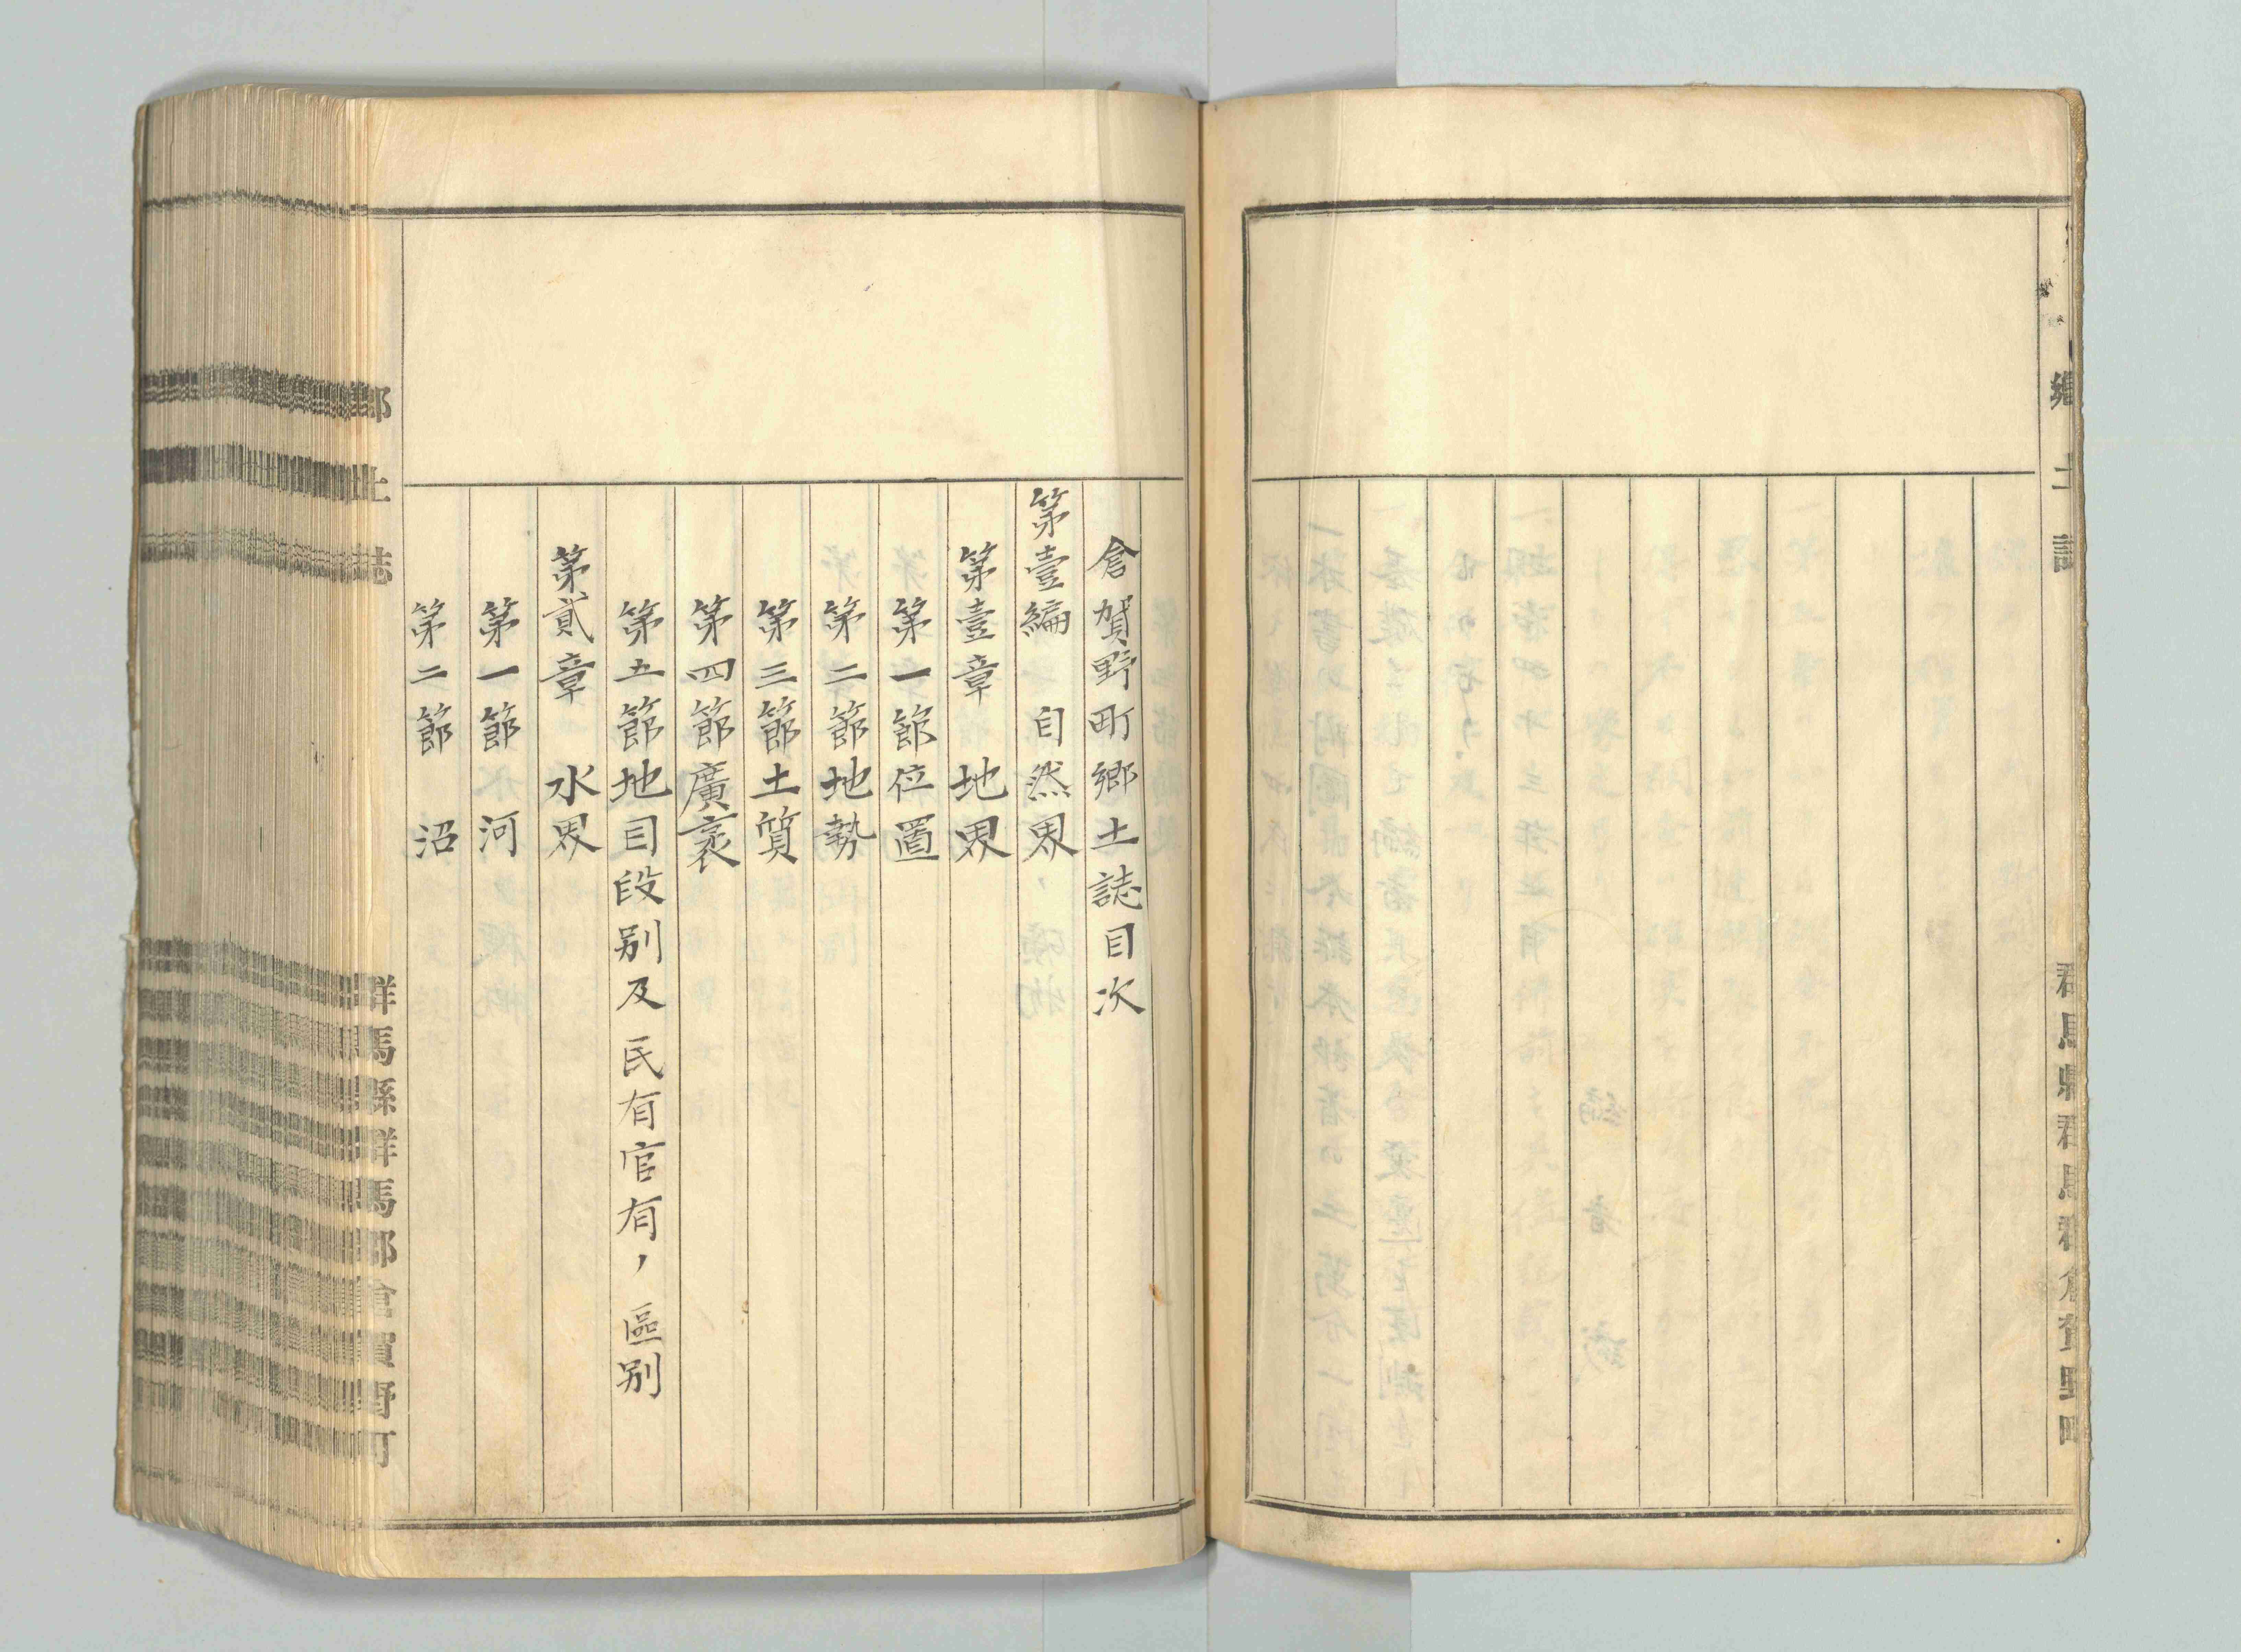 鄕土誌
群馬縣群馬郡倉賀野町
倉賀野町郷土誌目次
第壹編 自然界
第壹章 地界
第一節 位置
第二節 地勢
第三節 土質
第四節 廣袤
第五節 地目段別及民有官有ノ區別
第貳章 水界
第一節 河
第二節 沼
鄕土誌
群馬縣群馬郡倉賀野町